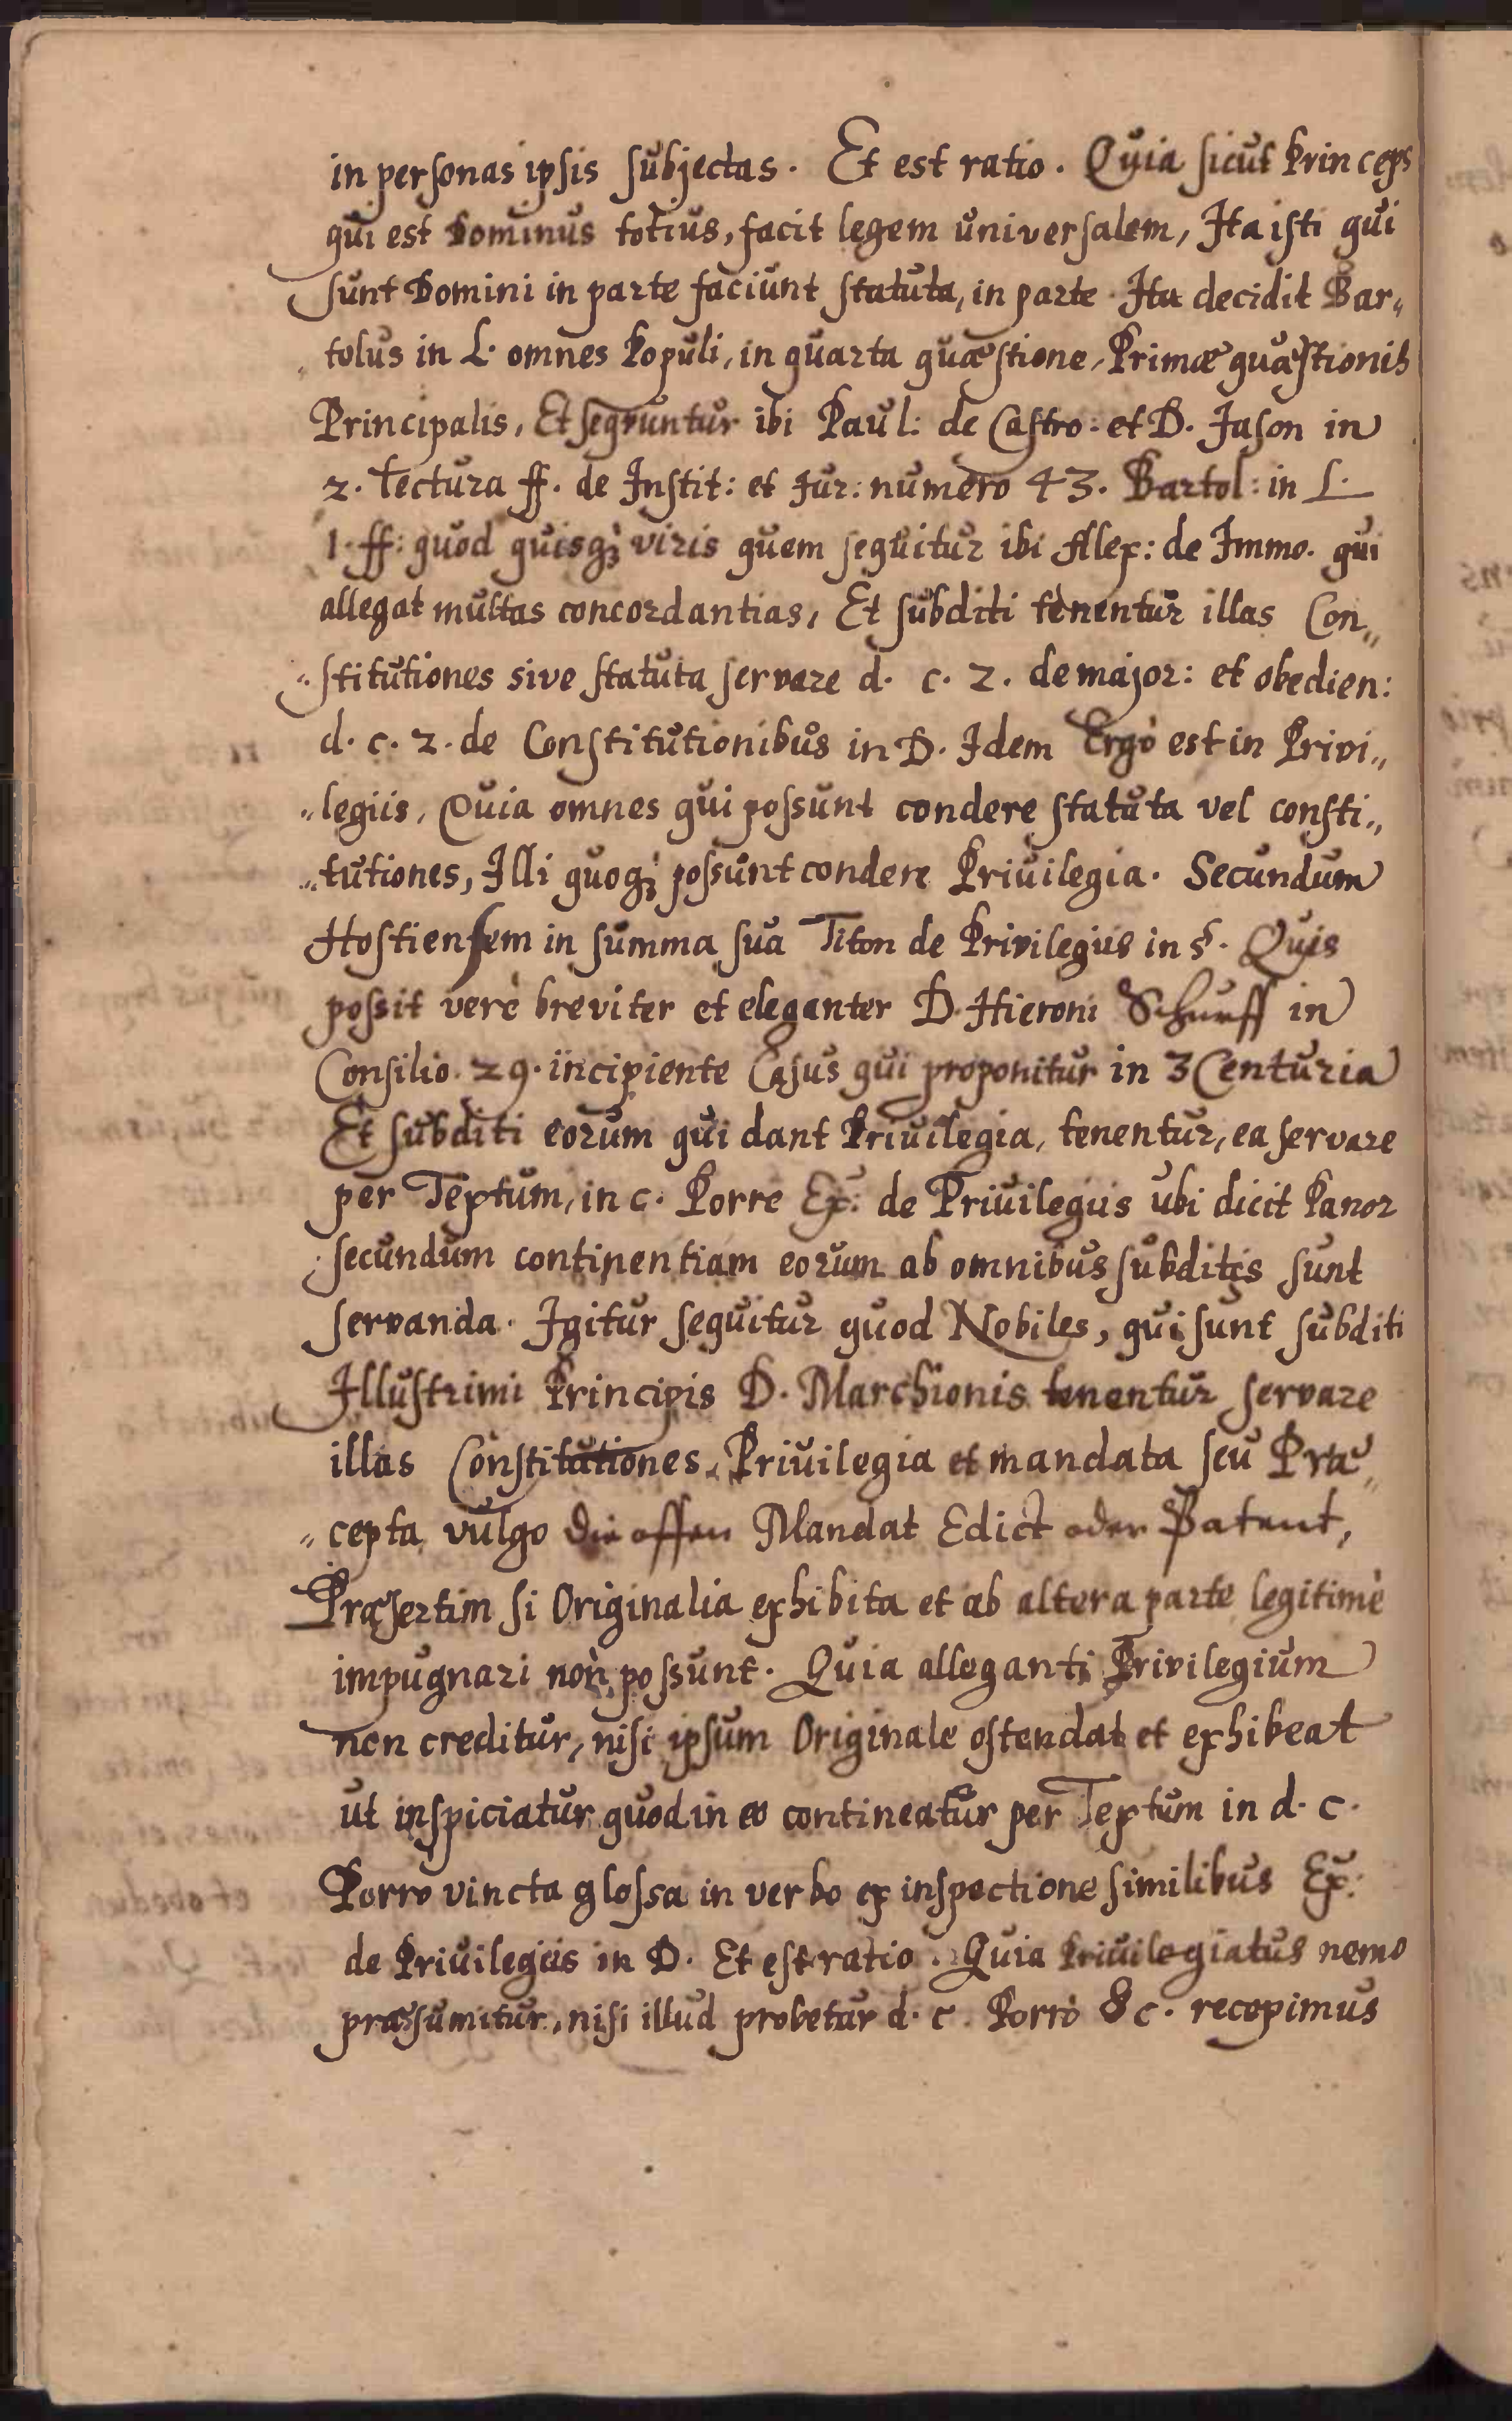 in personas ipsis subjectas. Et est ratio. Quia sicut Princeps
qui est Dominus totius, facit legem universalem, Ita isti qui
sunt Domini in parte faciunt statuta, in parte. Ita decidit Bar„
tolus in L. omnes Populi, in quarta quæstione, Primæ quæstionis
Principalis, Et sequuntur ibi Paul: de Castro: et D. Jason in
2. Lectura ff. de Instit: et Jur: numero 43. Bartol: in L.
1. ff: quod quisqꝫ viris quem sequitur ibi Alex: de Immo. qui
allegat multas concordantias, Et subditi tenentur illas Con„
„stitutiones sive statuta servare d. c. 2. de major: et obedien:
d. c. 2. de Constitutionibus in D. Idem Ergò est in Privi„
„legiis, Quia omnes qui possunt condere statuta vel consti„
„tutiones, Illi quoqꝫ possunt condere Privilegia. Secundum
Hostiensem in summa sua Titon de Privilegiis in §. Quis
possit verè breviter et eleganter D. Hieroni Schurff in
Consilio. 29. incipiente Casus qui proponitur in 3 Centuria
Et subditi eorum qui dant Privilegia, tenentur, ea servare
per Textum, in c. Porre Ex: de Privilegiis ubi dicit Panor
secundum continentiam eorum ab omnibus subditis sunt
servanda. Igitur sequitur quod Nobiles, qui sunt subditi
Illustrimi Principis D. Marchionis tenentur servare
illas Constitutiones, Privilegia et mandata seu Præ„
„cepta vulgo die offen Mandat Edict oder Patent,
Præsertim si Originalia exhibita et ab altera parte legitimè
impugnari non possunt. Quia alleganti Privilegium
non creditur, nisi ipsum Originale ostendat et exhibeat
ut inspiciatur quod in eo contineatur per Textum in d. c.
Porro vincta glossa in verbo ex inspectione similibus Ex:
de Privilegiis in D. Et est ratio. Quia Privilegiatus nemo
præsumitur, nisi illud probetur d. c. Porrò &c. recepimus